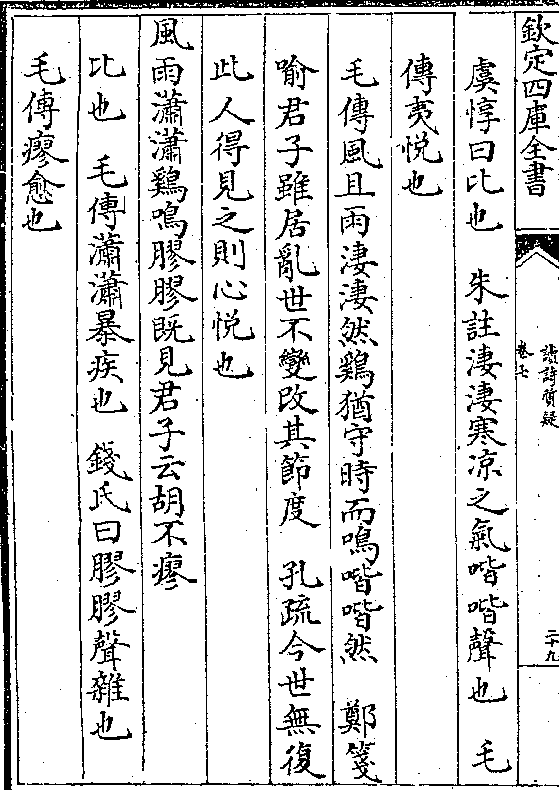 欽定四庫全書
讀詩質疑
卷七
二十九
虞惇曰比也　朱註淒淒寒凉之氣喈喈聲也　毛
傳夷悦也
毛傳風且雨淒淒然鷄猶守時而鳴喈喈然　鄭箋
喻君子雖居亂世不變改其節度　孔疏今世無復
此人得見之則心悦也
風雨瀟瀟鷄鳴膠膠既見君子云胡不瘳
比也　毛傳瀟瀟暴疾也　錢氏曰膠膠聲雜也
毛傳瘳愈也